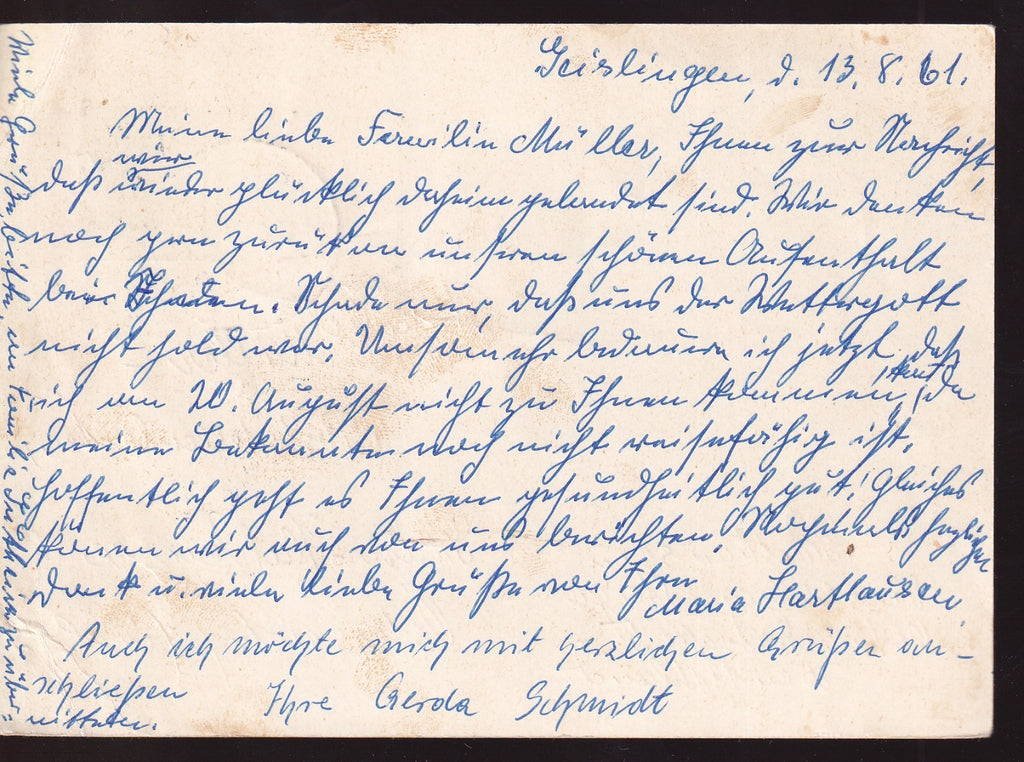 Geislingen, d. 13. 8. 61.
Meine liebe Familie Müller, Ihnen zur Nachricht,
daß wir wieder glücklich daheim gelandet sind. Wir denken
noch gern zurück an unseren schönen Aufenthalt
bei Ihnen. Schade nur, daß uns der Wettergott
nicht hold war. Umsomehr bedauere ich jetzt, daß
ich am 20. August nicht zu Ihnen kommen kann, da
meine Bekannte noch nicht reisefähig ist.
Hoffentlich geht es Ihnen gesundheitlich gut! Gleiches
können wir auch von uns berichten. Nochmals herzlichen
Dank u. viele liebe Grüße von Ihrer
Maria Harthausen
Auch ich möchte mich mit herzlichen Grüßen an-
schließen Ihre Gerda Schmidt
Viele Grüße, bitte, an Familie zu über-
mitteln.